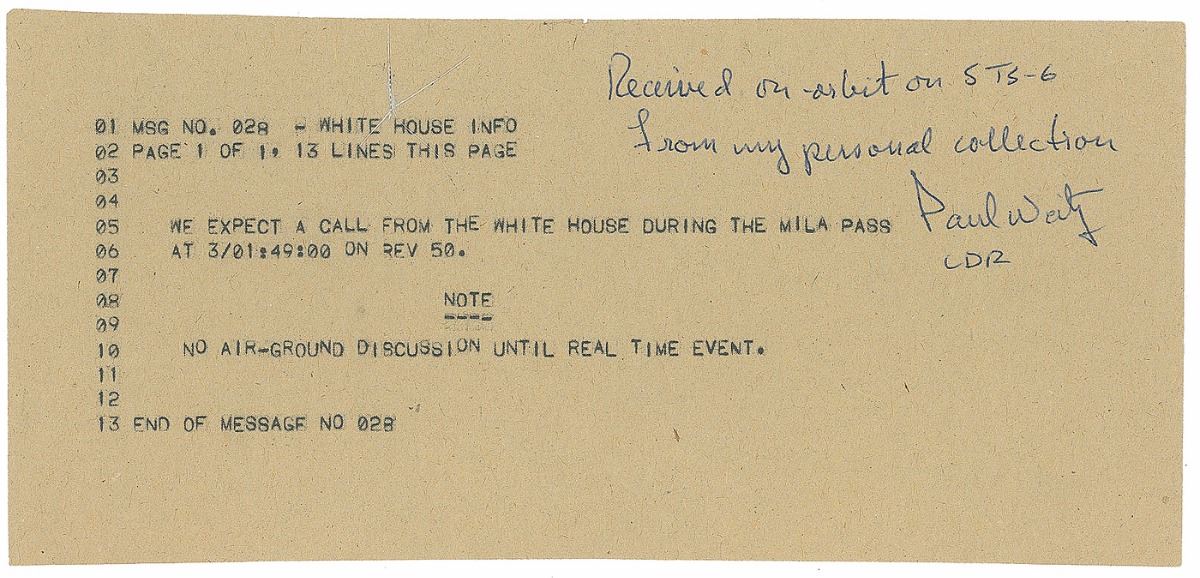 Received on-orbit on STS-6
From my personal collection
Paul Weitz
CDR
01 MSG NO. 028 - WHITE HOUSE INFO
02 PAGE 1 OF 1, 13 LINES THIS PAGE
03
04
05 WE EXPECT A CALL FROM THE WHITE HOUSE DURING THE MILA PASS
06 AT 3/01:49:00 ON REV 50.
07
08 NOTE
09 ----
10 NO AIR-GROUND DISCUSSION UNTIL REAL TIME EVENT.
11
12
13 END OF MESSAGE NO 028